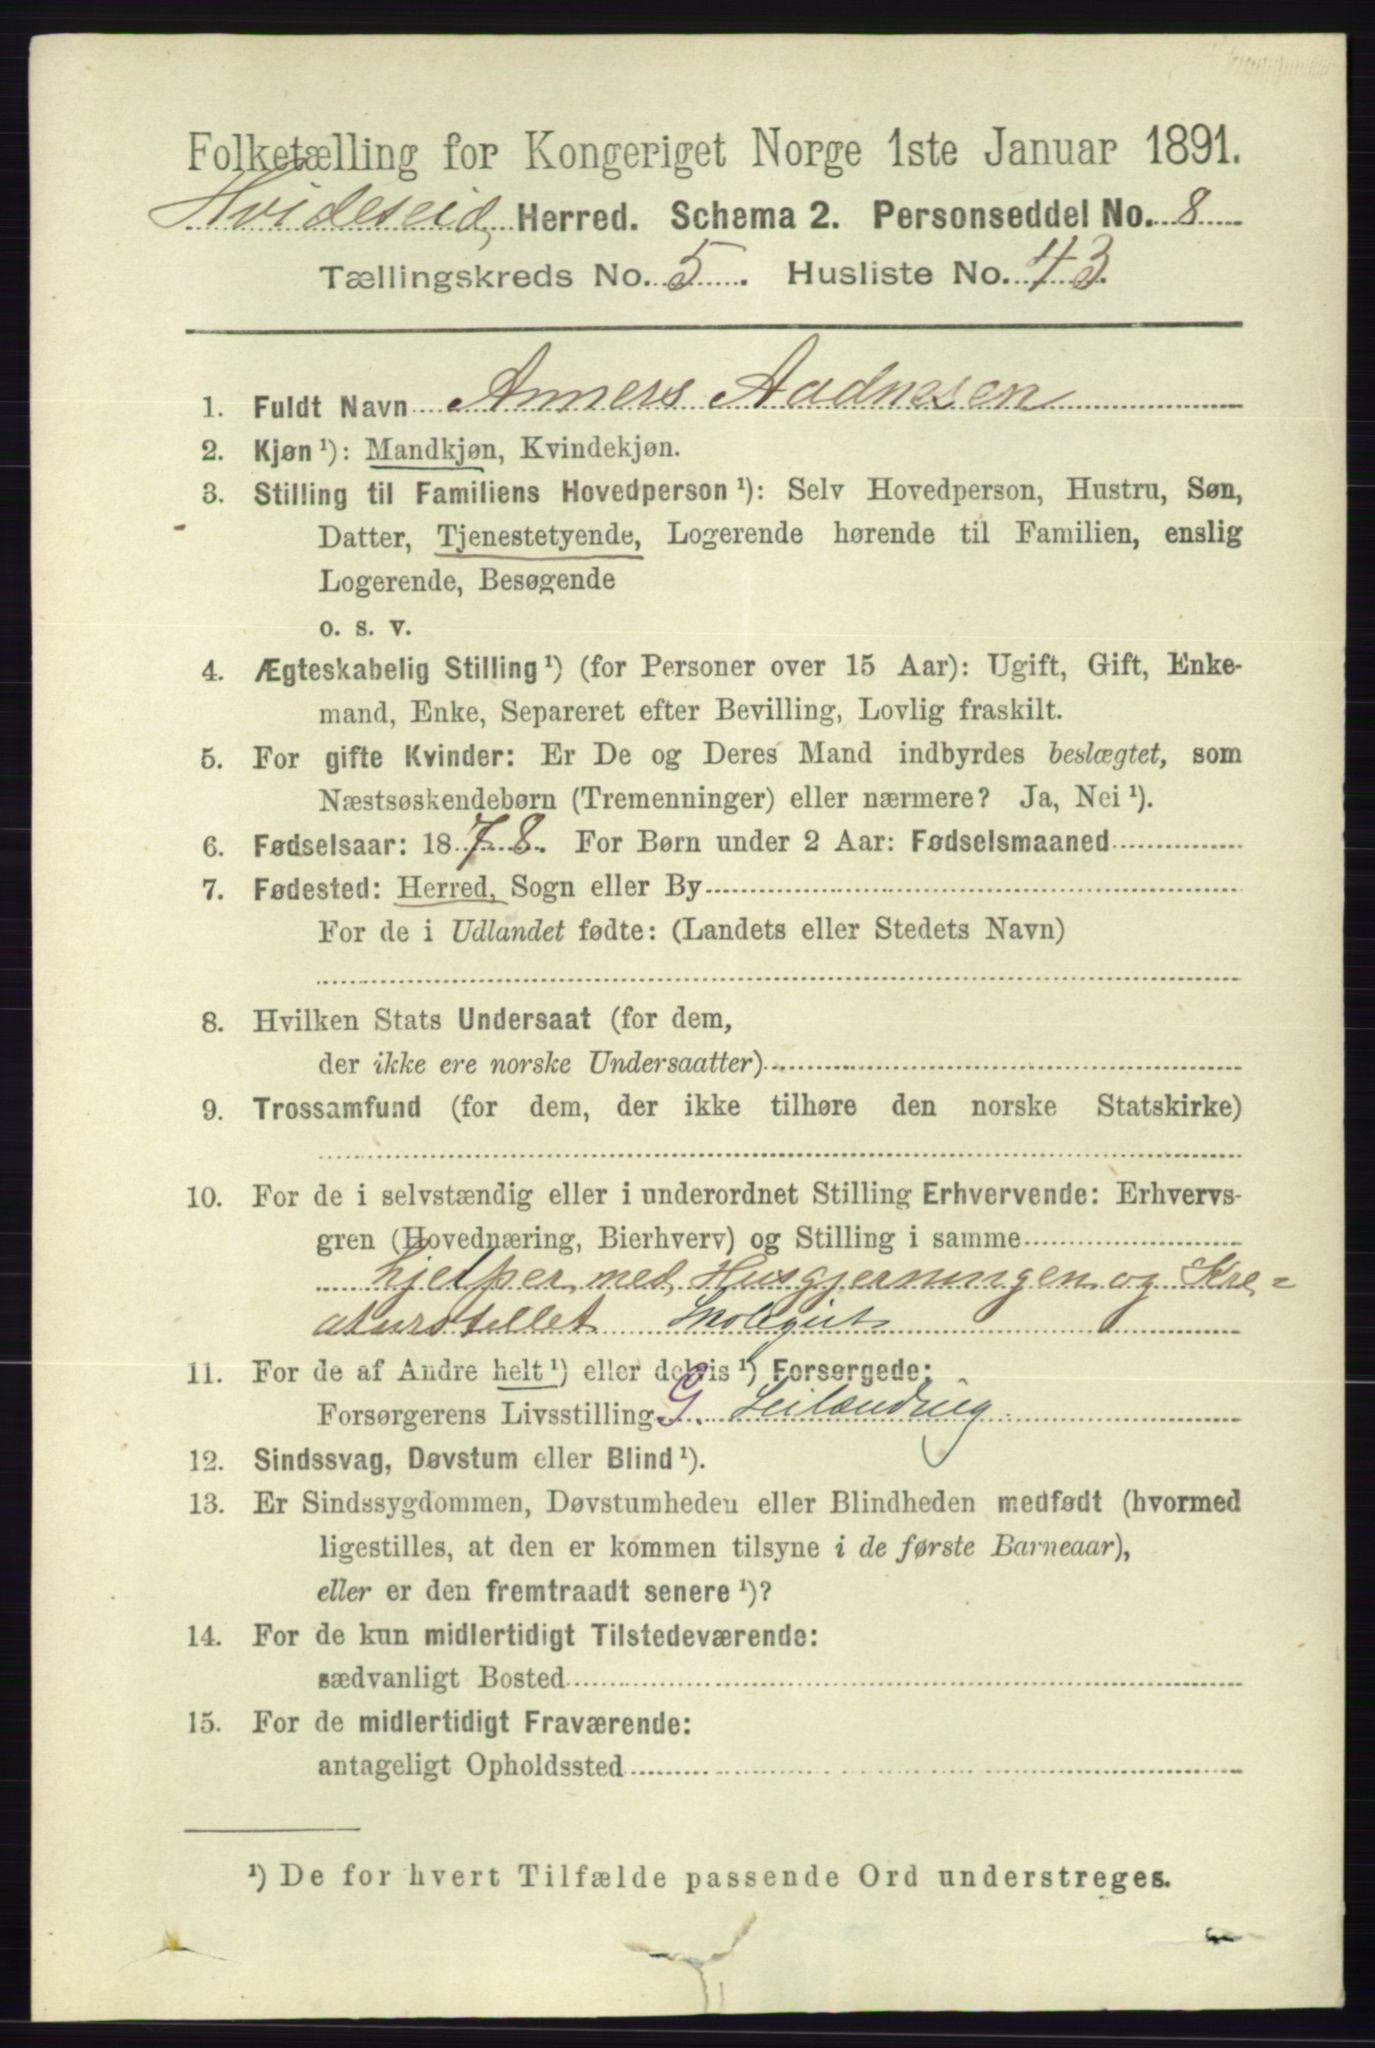 Folketælling for Kongeriget Norge 1ste Januar 1891.
Hvideseid, Herred. Schema 2. Personseddel No. 8
Tællingskreds No. 5. Husliste No. 43.
1. Fuldt Navn Anners Aadnesen
2. Kjøn ¹): Mandkjøn, Kvindekjøn.
3. Stilling til Familiens Hovedperson ¹): Selv Hovedperson, Hustru, Søn,
Datter, Tjenestetyende, Logerende hørende til Familien, enslig
Logerende, Besøgende
o. s. v.
4. Ægteskabelig Stilling ¹) (for Personer over 15 Aar): Ugift, Gift, Enke-
mand, Enke, Separeret efter Bevilling, Lovlig fraskilt.
5. For gifte Kvinder: Er De og Deres Mand indbyrdes beslægtet, som
Næstsøskendebørn (Tremenninger) eller nærmere? Ja, Nei ¹).
6. Fødselsaar: 1878. For Børn under 2 Aar: Fødselsmaaned
7. Fødested: Herred, Sogn eller By
For de i Udlandet fødte: (Landets eller Stedets Navn)
8. Hvilken Stats Undersaat (for dem,
der ikke ere norske Undersaatter)
9. Trossamfund (for dem, der ikke tilhøre den norske Statskirke)
10. For de i selvstændig eller i underordnet Stilling Erhvervende: Erhvervs-
gren (Hovednæring, Bierhverv) og Stilling i samme
hjelper med Husgjerningen og Kre=
aturstellet
11. For de af Andre helt ¹) eller delvis ¹) Forsørgede:
Forsørgerens Livsstilling G. Leilænding
12. Sindssvag, Døvstum eller Blind ¹).
13. Er Sindssygdommen, Døvstumheden eller Blindheden medfødt (hvormed
ligestilles, at den er kommen tilsyne i de første Barneaar),
eller er den fremtraadt senere ¹)?
14. For de kun midlertidigt Tilstedeværende:
sædvanligt Bosted
15. For de midlertidigt Fraværende:
antageligt Opholdssted
¹) De for hvert Tilfælde passende Ord understreges.